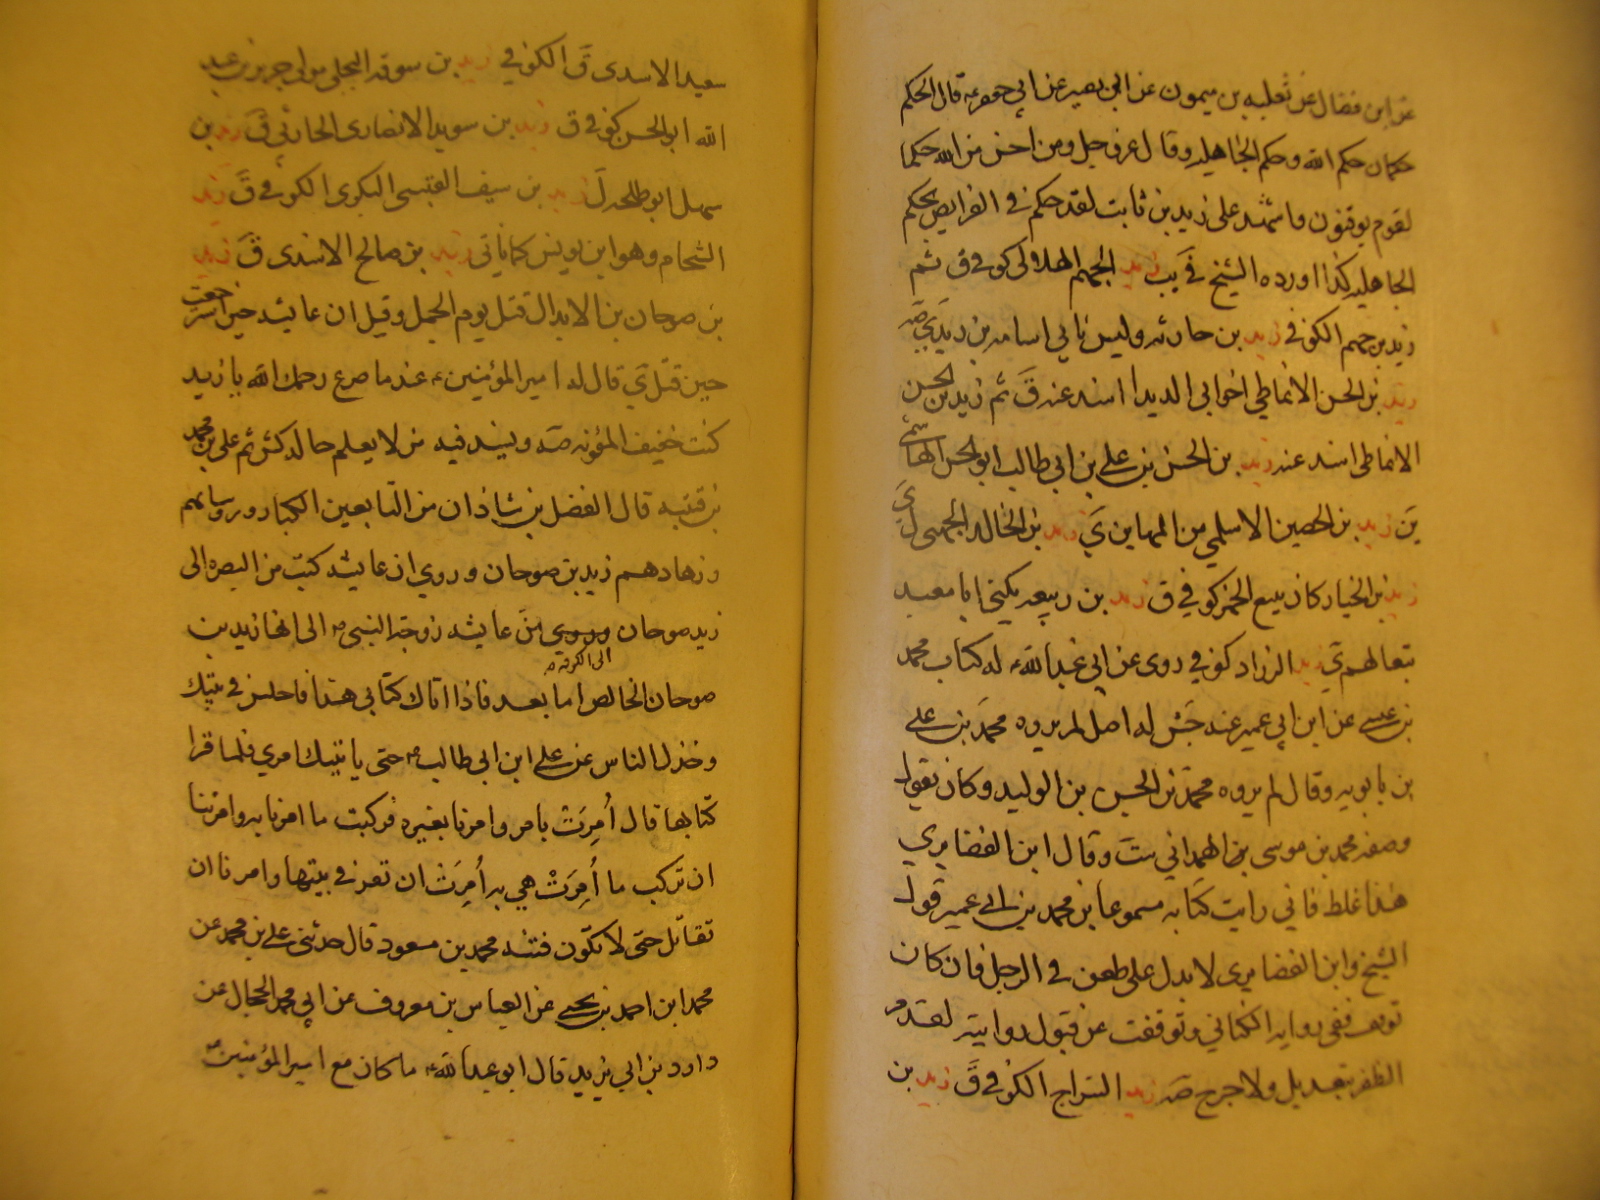 عن ابن فضال عن ثعلبه بن ميمون عن ابى بصير عن ابي جعفر ع قال الحكم
حكمان حكم الله وحكم الجاهليه وقال عز وجل ومن احسن من الله حكما
لقوم يوقنون واشهد على زيد بن ثابت لقد حكم في الفرايض بحكم
الجاهليه كذا اورده الشيخ في يب زيد الجهم الهلالي كوفي ق ثم
زيد بن جهم الكوفي زيد بن حارثه وليس بابي اسامه بن زيد ي صه
زيد بن الحسن الانماطي اخو ابي الديدا اسند عنه ق ثم زيد بن الحسن
الانماطي اسند عنه زيد بن الحسن بن علي بن ابي طالب ابو الحسن الهاشمي
ين زيد بن الحصين الاسلمي من المهاجرين ي زيد بن الخالد الجهني ل ي
زيد بن الخيار كان يبيع الخمر كوفي ق زيد بن ربيعه يكنى ابا معبد
زيد الزراد كوفي روى عن ابي عبد الله ع له كتاب محمد
بن عيسى عن ابن ابي عمير عنه جش له اصل لم يروه محمد بن علي
بن بابويه وقال لم يروه محمد بن الحسن بن الوليد وكان يقول
وضعه محمد بن موسى الهمداني ست وقال ابن الغضايري
هذا غلط فاني رايت كتابه مسموعا بن محمد بن ابي عمير قول
الشيخ وابن الغضايري لا يدل على طعن في الرجل فان كان
توقف ففي رواية الكتابين وتوقفت عن قبول روايته لعدم
الظفر بتعديل ولا جرح صه زيد السراج الكوفي ق زيد بن
سعيد الاسدى ق الكوفي زيد بن سوقه البجلي مولى جرير بن عبد
الله ابو الحسن كوفي ق زيد بن سويد الانصارى الحارثي ق زيد بن
سهل ابو طلحه ل زيد بن سيف القيسى البكرى الكوفي ق زيد
الشحام وهو ابن يونس كما ياتي زيد بن صالح الاسدى ق زيد
بن صوحان من الابدال قتل يوم الجمل وقيل ان عايشه حين استرجعت
حين قتل ي قال له امير المؤمنين ع عند ما صرع رحمك الله يا زيد
كنت خفيف المؤونه صه وبسند فيه من لا يعلم حاله كش ثم علي بن محمد
بن قتيبه قال الفضل بن شاذان من التابعين الكبار ورؤسائهم
وزهادهم زيد بن صوحان وروي ان عايشه كتبت من البصره الى
زيد صوحان وروي من عايشه زوجة النبي ص الى ابنها زيد بن
الى الكوفه
صوحان الخالص اما بعد فاذا اتاك كتابي هذا فاجلس في بيتك
وخذل الناس عن علي ابن ابي طالب ع حتى ياتيك امري فلما قرا
كتابها قال اُمِرَتْ بامر وامرنا بغيره فركبت ما امرنا به وامرتنا
ان نركب ما اُمِرَتْ هي به اُمِرَتْ ان تقر في بيتها وامرنا ان
نقاتل حتى لا تكون فتنه محمد بن مسعود قال حدثني علي بن محمد عن
محمد ابن احمد بن يحيى عن العباس بن معروف عن ابي محمد الحجال عن
داود بن ابي يزيد قال ابو عبد الله ع ما كان مع امير المؤمنين ع